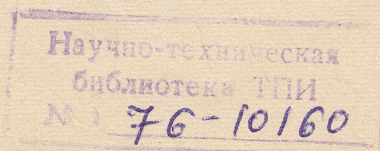 Научно-техническая
библиотека ТПИ
№ 76-10160